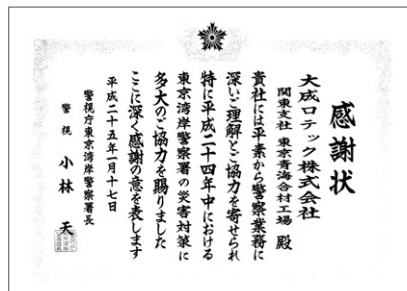 感謝状
大成ロテック株式会社
関東支社 東京青海合材工場 殿
貴社には平素から警察業務に
深いご理解とご協力を寄せられ
特に平成二十四年中における
東京湾岸警察署の災害対策に
多大のご協力を賜りました
ここに深く感謝の意を表します
平成二十五年一月十七日
警視庁東京湾岸警察署長
警視 小林 天